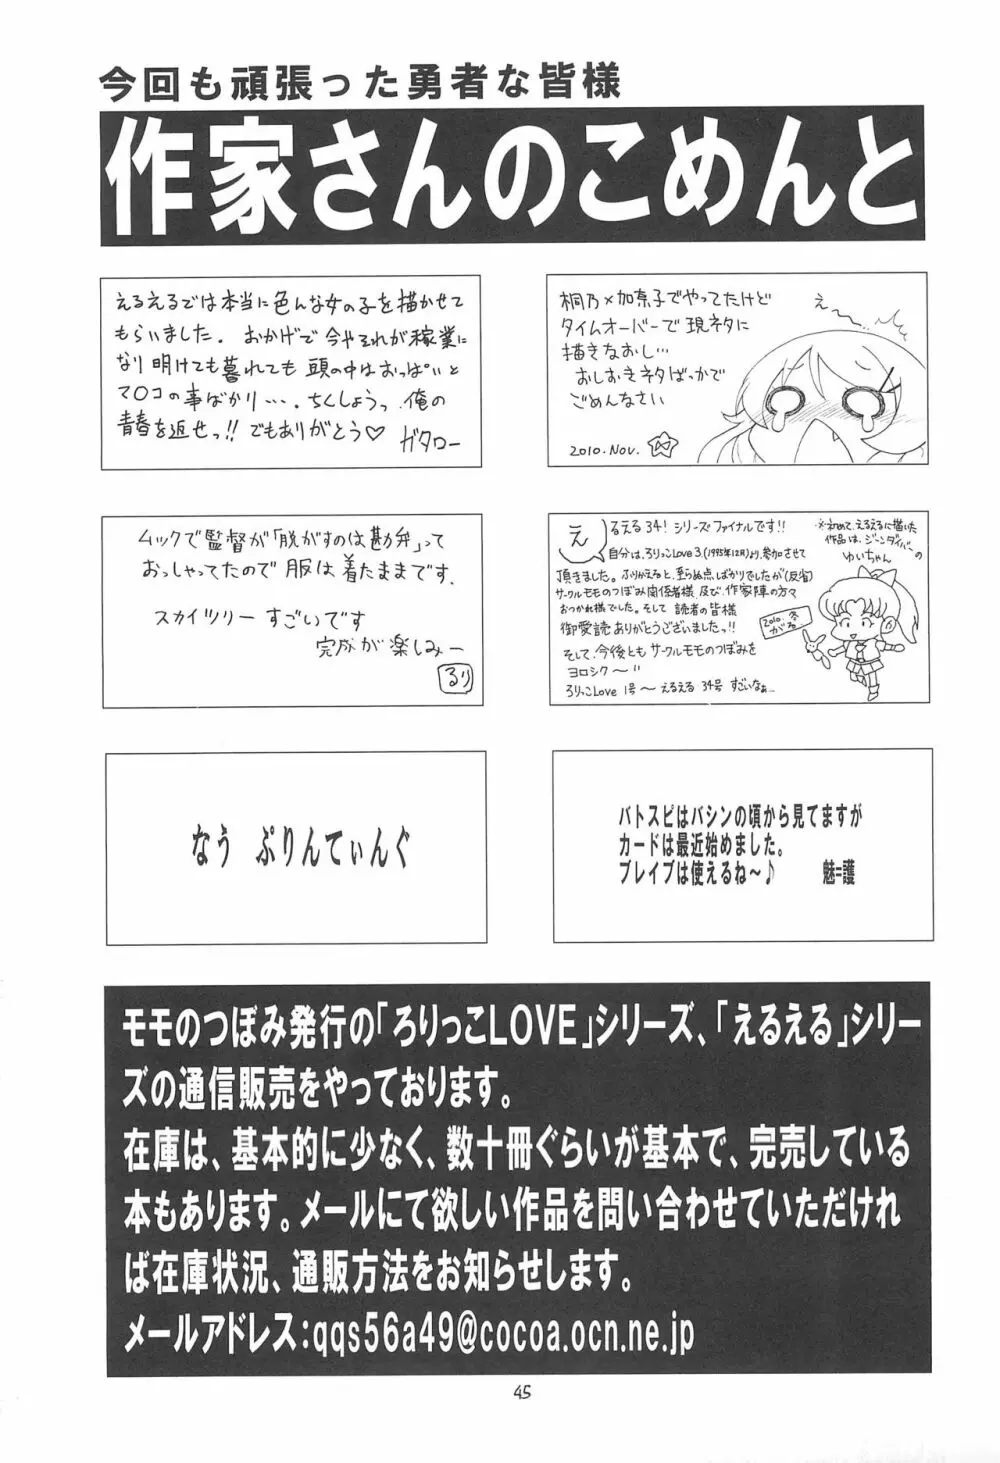 今回も頑張った勇者な皆様
作家さんのこめんと
えるえるでは本当に色んな女の子を描かせて
もらいました。おかげで今やそれが稼業に
なり明けても暮れても頭の中はおっぱいと
マ○コの事ばかり…。ちくしょうっ俺の
青春を返せっ!!でもありがとう♡
ガタロー
桐乃×加奈子でやってたけど
タイムオーバーで現ネタに
描きなおし…
おしおきネタばっかで
ごめんなさい
2010.Nov.
え〜
ムックで監督が「脱がすのは勘弁」って
おっしゃってたので服は着たままです.
スカイツリーすごいです
完成が楽しみー
るり
えるえる34!シリーズファイナルです!!
自分は、ろりっこLove3.(1995年12月)より、参加させて
頂きました。ふりかえると、至らぬ点ばかりでしたが(反省)
サークルモモのつぼみ関係者様、及び、作家陣の方々
おつかれ様でした。そして読者の皆様
御愛読ありがとうございましたっ!!
そして、今後ともサークルモモのつぼみを
ヨロシク〜
ろりっこLove 1号〜えるえる 34号 すごいなぁ…
※初めて、えるえるに描いた
作品は、ジーンダイバーの
ゆいちゃん
2010.冬
なう ぷりんてぃんぐ
バトスピはバシンの頃から見てますが
カードは最近始めました。
ブレイブは使えるね〜♪ 魅=護
モモのつぼみ発行の「ろりっこLOVE」シリーズ、「えるえる」シリー
ズの通信販売をやっております。
在庫は、基本的に少なく、数十冊ぐらいが基本で、完売している
本もあります。メールにて欲しい作品を問い合わせていただけれ
ば在庫状況、通販方法をお知らせします。
メールアドレス:qqs56a49@cocoa.ocn.ne.jp
45